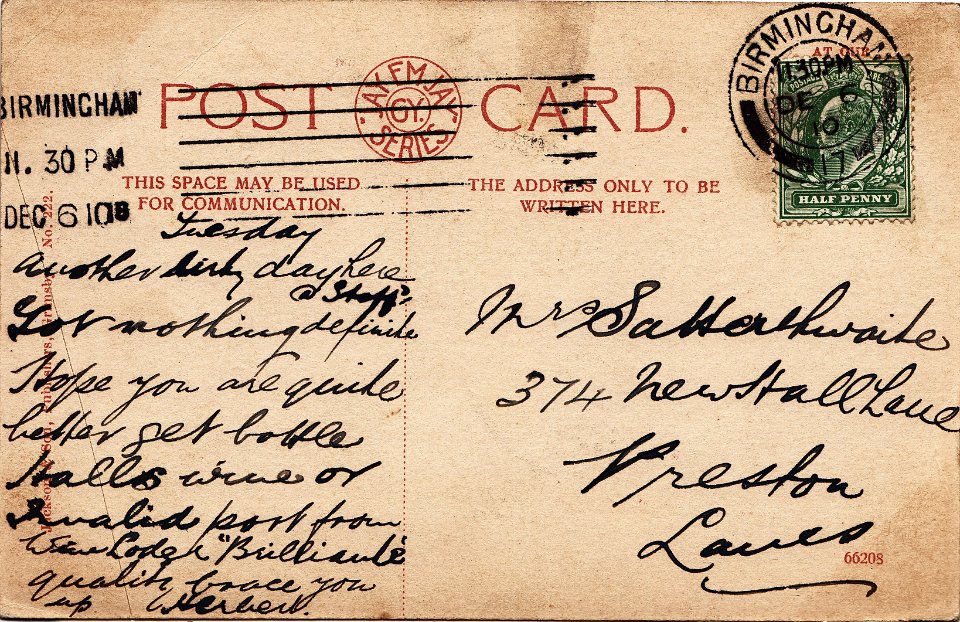 BIRMINGHAM
11.30 PM
DEC 6 10
BIRMINGHAM
11.30 PM
DE 6
10
17
POST CARD.
JAY EM JAY
GY.
SERIES
AT OUR
HALF PENNY
THIS SPACE MAY BE USED
FOR COMMUNICATION.
THE ADDRESS ONLY TO BE
WRITTEN HERE.
Jackson & Son, Publishers, Grimsby. No. 222.
Tuesday
Another dirty day here
@ Staffs
Got nothing definite
Hope you are quite
better get bottle
Halls wine or
Invalid port from
Wine Lodge "Brilliante"
quality brace you
up Herbert.
Mrs Satterthwaite
374 New Hall Lane
Preston
Lancs
66208